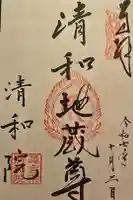 奉拝
清和地蔵尊
令和七年
十月二日
清和院